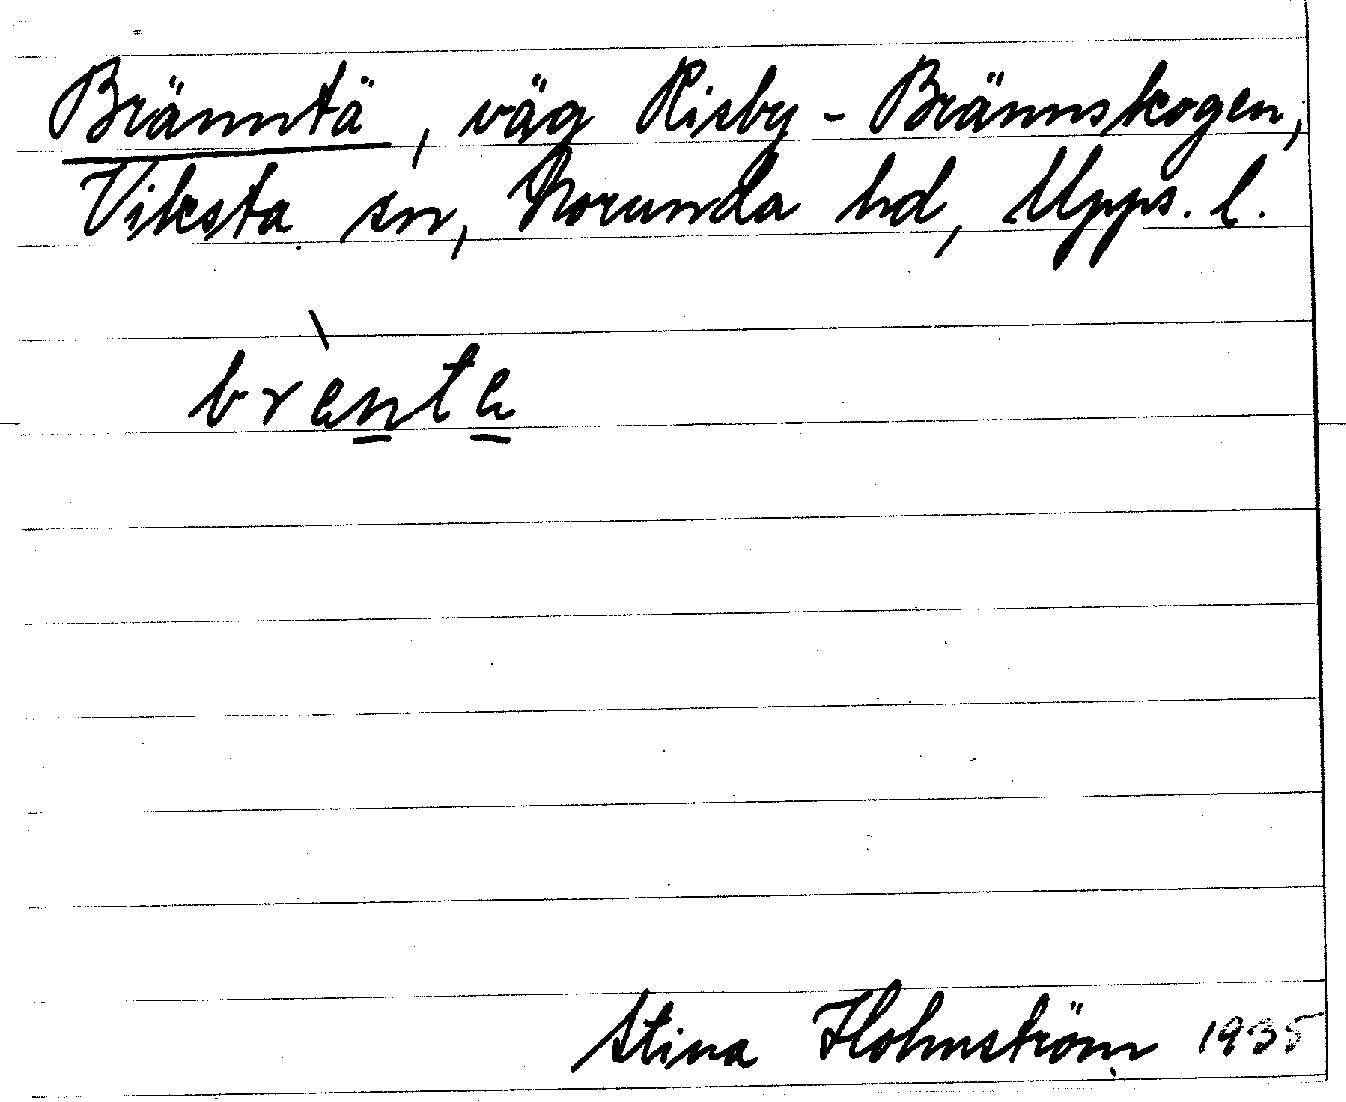 Bränntä, väg Risby - Brännskogen,
Viksta sn, Norunda hd, Upps. l.
brànta
Stina Holmström 1935